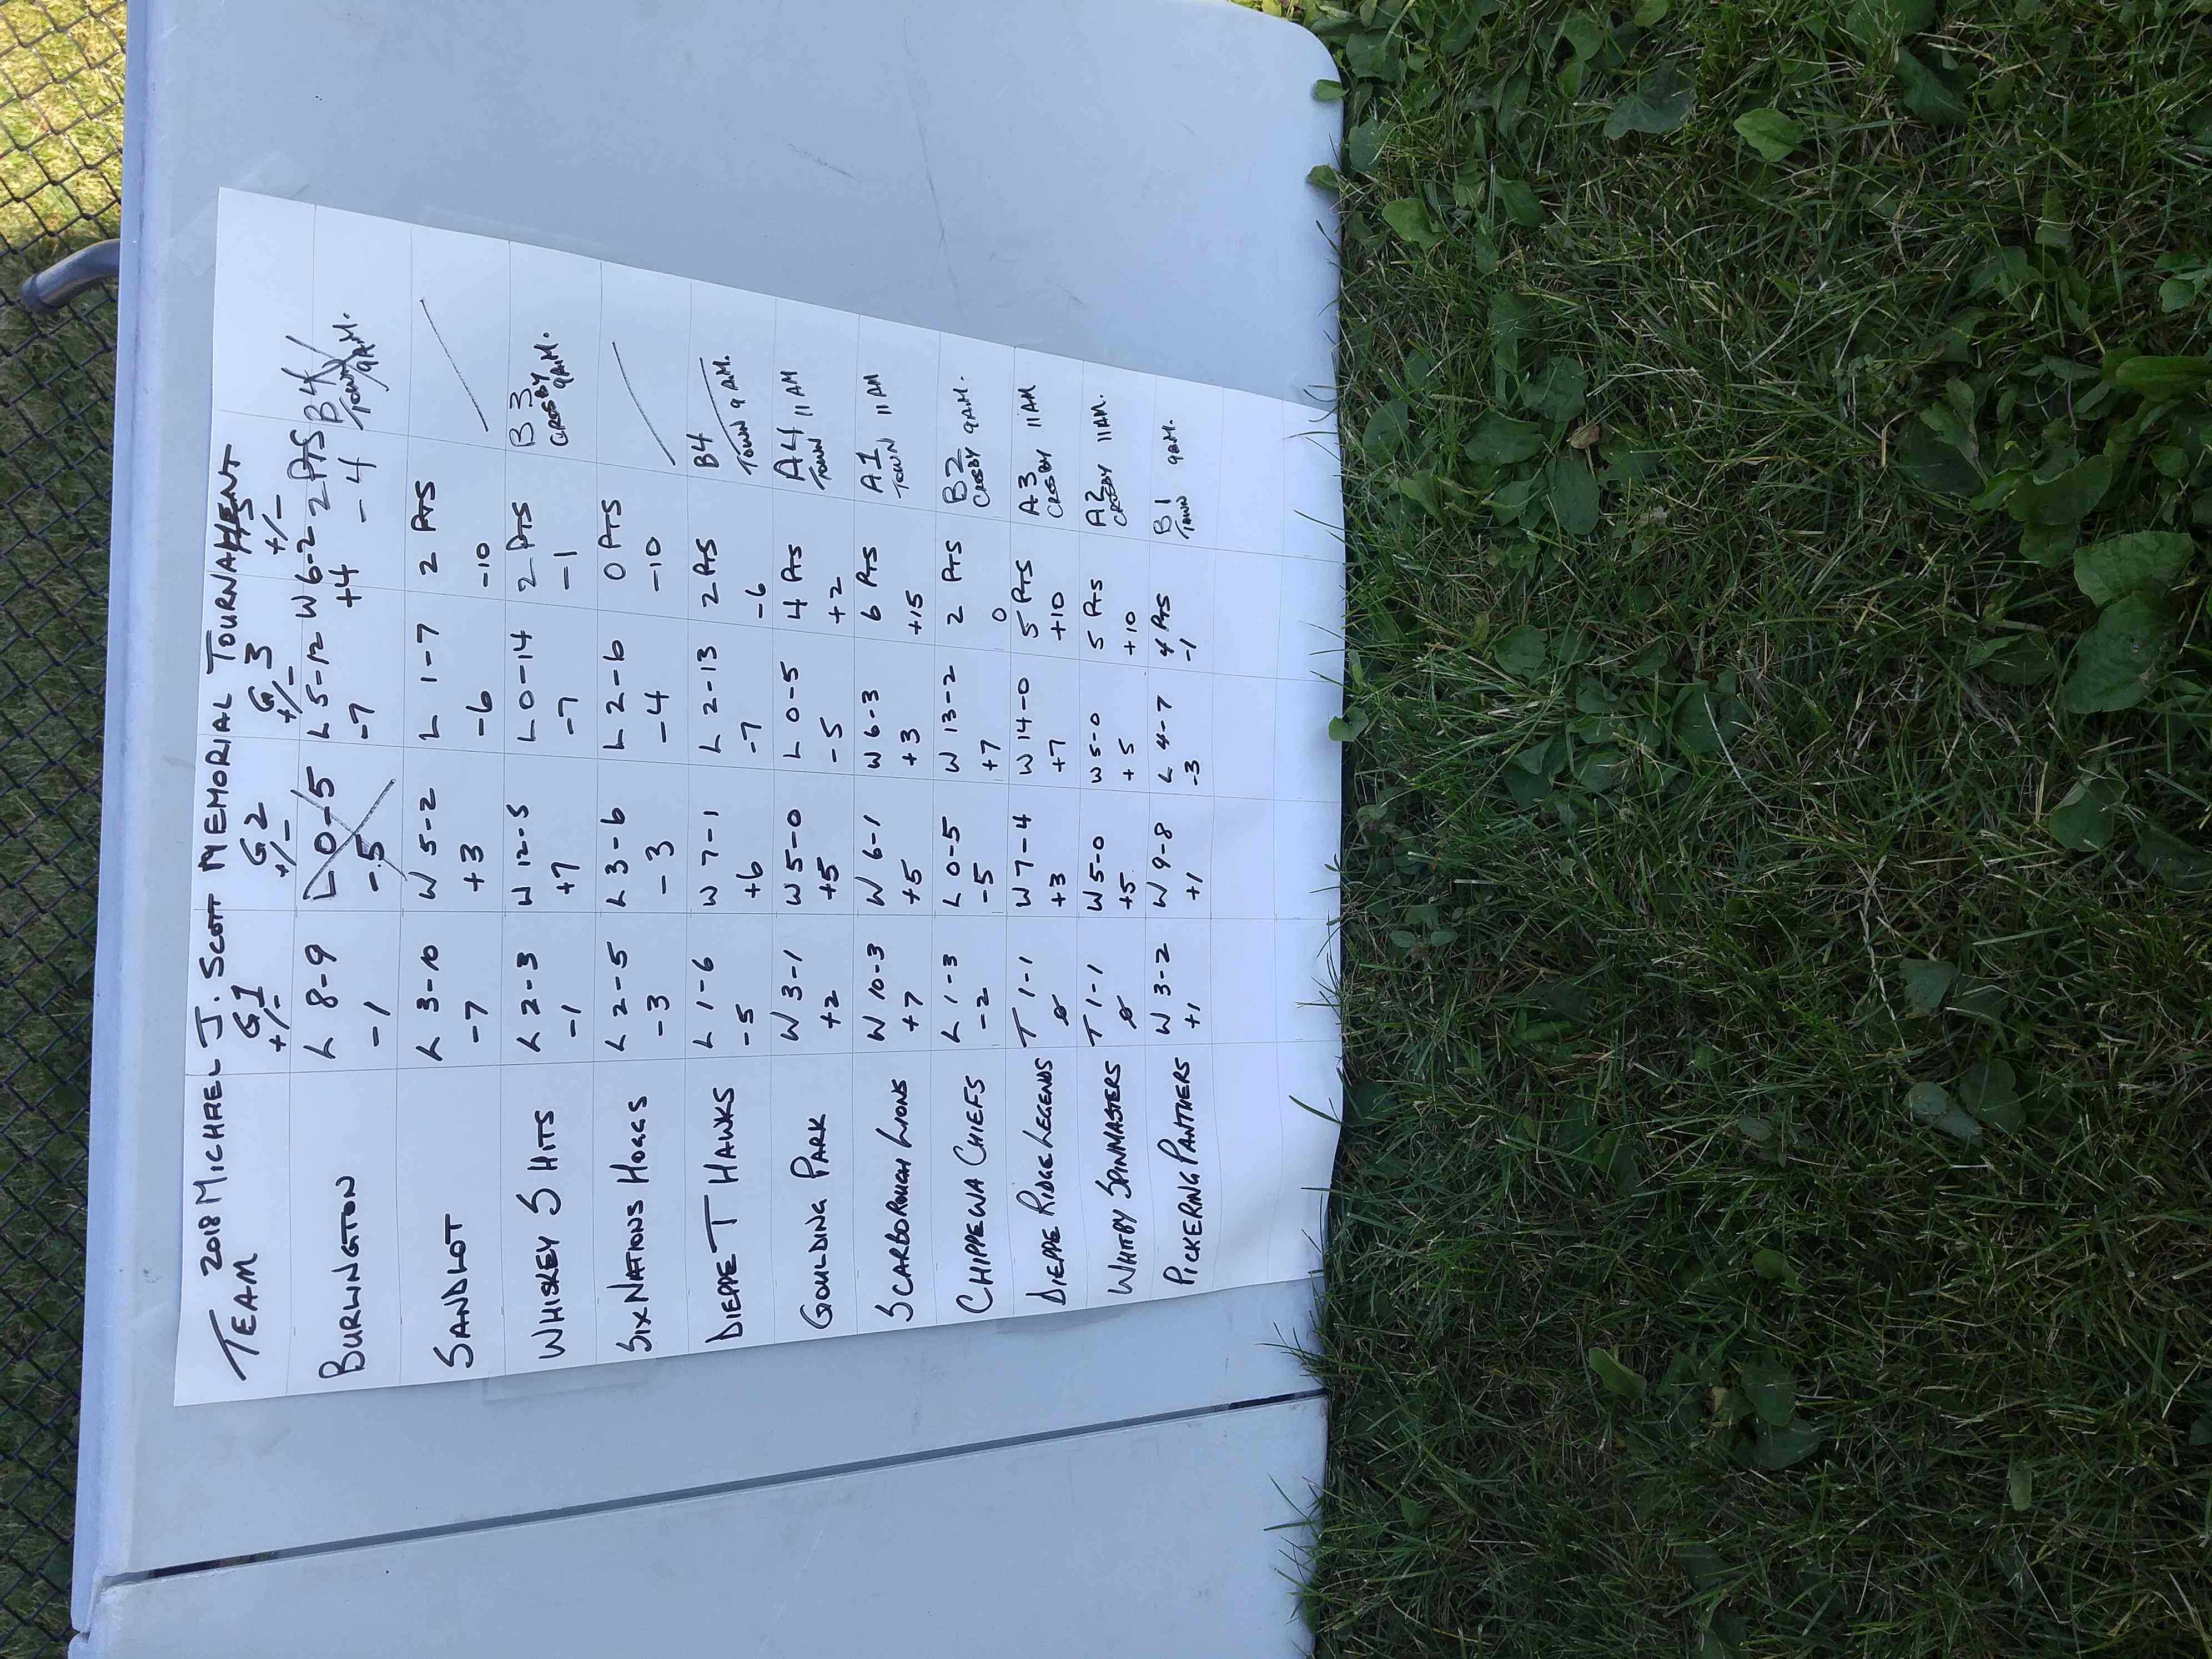 2018 MICHAEL J. SCOTT MEMORIAL TOURNAMENT
TEAM G1 G2 G3
+/- +/- +/- +/-
BURLINGTON L 8-9 L 0-5 L 5-12 W 6-2 2 PTS B4
-1 -5 -7 +4 -4 TOWN 9AM.
SANDLOT L 3-10 W 5-2 L 1-7 2 PTS
-7 +3 -6 -10
WHISKEY S HITS L 2-3 W 12-5 L 0-14 2 PTS B3
-1 +7 -7 -1 CROSBY 9AM.
SIX NATIONS HOGGS L 2-5 L 3-6 L 2-6 0 PTS
-3 -3 -4 -10
DIEPPE T HAWKS L 1-6 W 7-1 L 2-13 2 PTS B4
-5 +6 -7 -6 TOWN 9AM.
GOULDING PARK W 3-1 W 5-0 L 0-5 4 PTS A4 11AM
+2 +5 -5 +2 TOWN
SCARBOROUGH LIONS W 10-3 W 6-1 W 6-3 6 PTS A1 11AM
+7 +5 +3 +15 TOWN
CHIPPEWA CHIEFS L 1-3 L 0-5 W 13-2 2 PTS B2 9AM.
-2 -5 +7 0 CROSBY
DIEPPE RIDGE LEGENDS T 1-1 W 7-4 W 14-0 5 PTS A3 11AM
0 +3 +7 +10 CROSBY
WHITBY SPINMASTERS T 1-1 W 5-0 W 5-0 5 PTS A2 11AM.
0 +5 +5 +10 CROSBY
PICKERING PANTHERS W 3-2 W 9-8 L 4-7 4 PTS B1 9AM.
+1 +1 -3 -1 TOWN